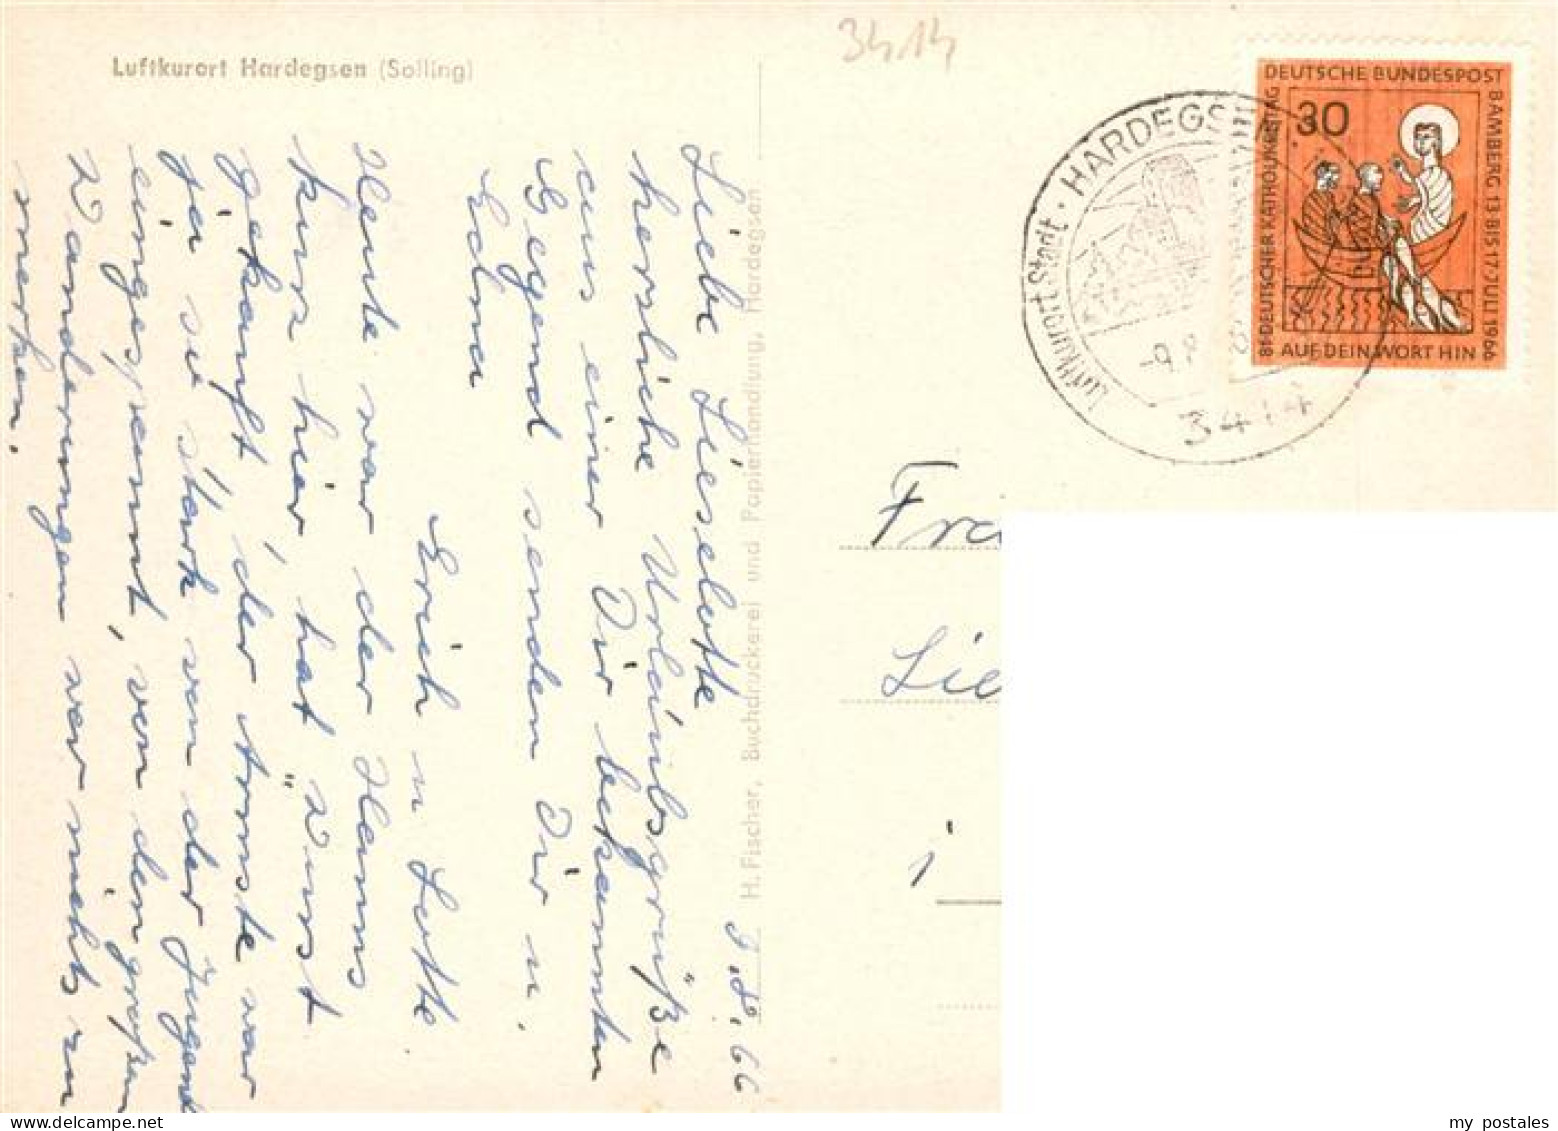 Luftkurort Hardegsen (Solling)
9.8.66
Liebe Lieselotte
herzliche Urlaubsgrüße
aus einer Dir bekannten
Gegend senden Dir u.
Edmu
Erich u Lotte
Heute war der Hanns
kurz hier, hat Wurst
gekauft, der Ärmste war
ja so stark von der Jugend
eingespannt, von den großen
Wanderungen war nichts zu
merken.
H. Fischer, Buchdruckerei und Papierhandlung, Hardegsen
3414
Luftkurort Stadt · HARDEGSEN
-9.8
3414
DEUTSCHE BUNDESPOST
BAMBERG 13 BIS 17 JULI 1966
81 DEUTSCHER KATHOLIKENTAG
30
AUF DEIN WORT HIN
Fra
Lie
i
my postales